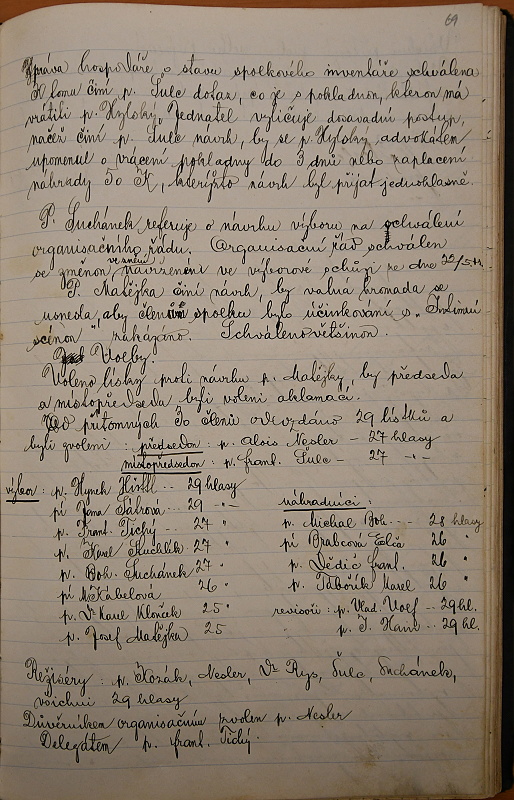 69
Zpráva hospodáře o stavu spolkového inventáře schválena
K tomu činí p. Šulc dotaz, co je s pokladnou, kterou má
vrátiti p. Hylský. Jednatel vyličuje dosavadní postup,
načež činí p. Šulc návrh, by se p. Hylský advokátem
upomenul o vrácení pokladny do 3 dnů nebo zaplacení
náhrady 50 K, kterýžto návrh byl přijat jednohlasně.
P. Suchánek referuje o návrhu výboru na schválení
organisačního řádu. Organisační řád schválen
se změnou ve znění navrženém ve výborové schůzi ze dne 22/5.
P. Matějka činí návrh, by valná hromada se
usnesla, aby členům spolku bylo účinkování s "Intimní
scénou" zakázáno. Schváleno většinou.
Volby.
Voleno lístky proti návrhu p. Matějky, by předseda
a místopředseda byli voleni aklamací.
Od přítomných 30 členů odevzdáno 29 lístků a
byli zvoleni: předsedou: p. Alois Nesler - 27 hlasy
místopředsedou: p. Frant. Šulc - 27 -"-
výbor: p. Hynek Hirsl -- 29 hlasy
pí Jana Šafrová -- 29 -"-
p. Frant. Tichý -- 27 "
p. Karel Kuchlík 27 "
p. Boh. Suchánek 27 "
pí M. Kábelová 26 "
p. Dr Karel Klouček 25 "
p. Josef Matějka 25
náhradníci:
p. Michal Boh. -- 28 hlasy
pí Brabcová Elča 26 "
p. Dědič Frant. 26 "
p. Táborík Karel 26 "
revisoři: p. Vlad. Volf -- 29 hl.
" p. J. Hanl -- 29 hl.
Režiséry: p. Kozák, Nesler, Dr Rys, Šulc, Suchánek,
všichni 29 hlasy
Důvěrníkem organisačním zvolen p. Nesler
Delegátem p. Frant. Tichý.